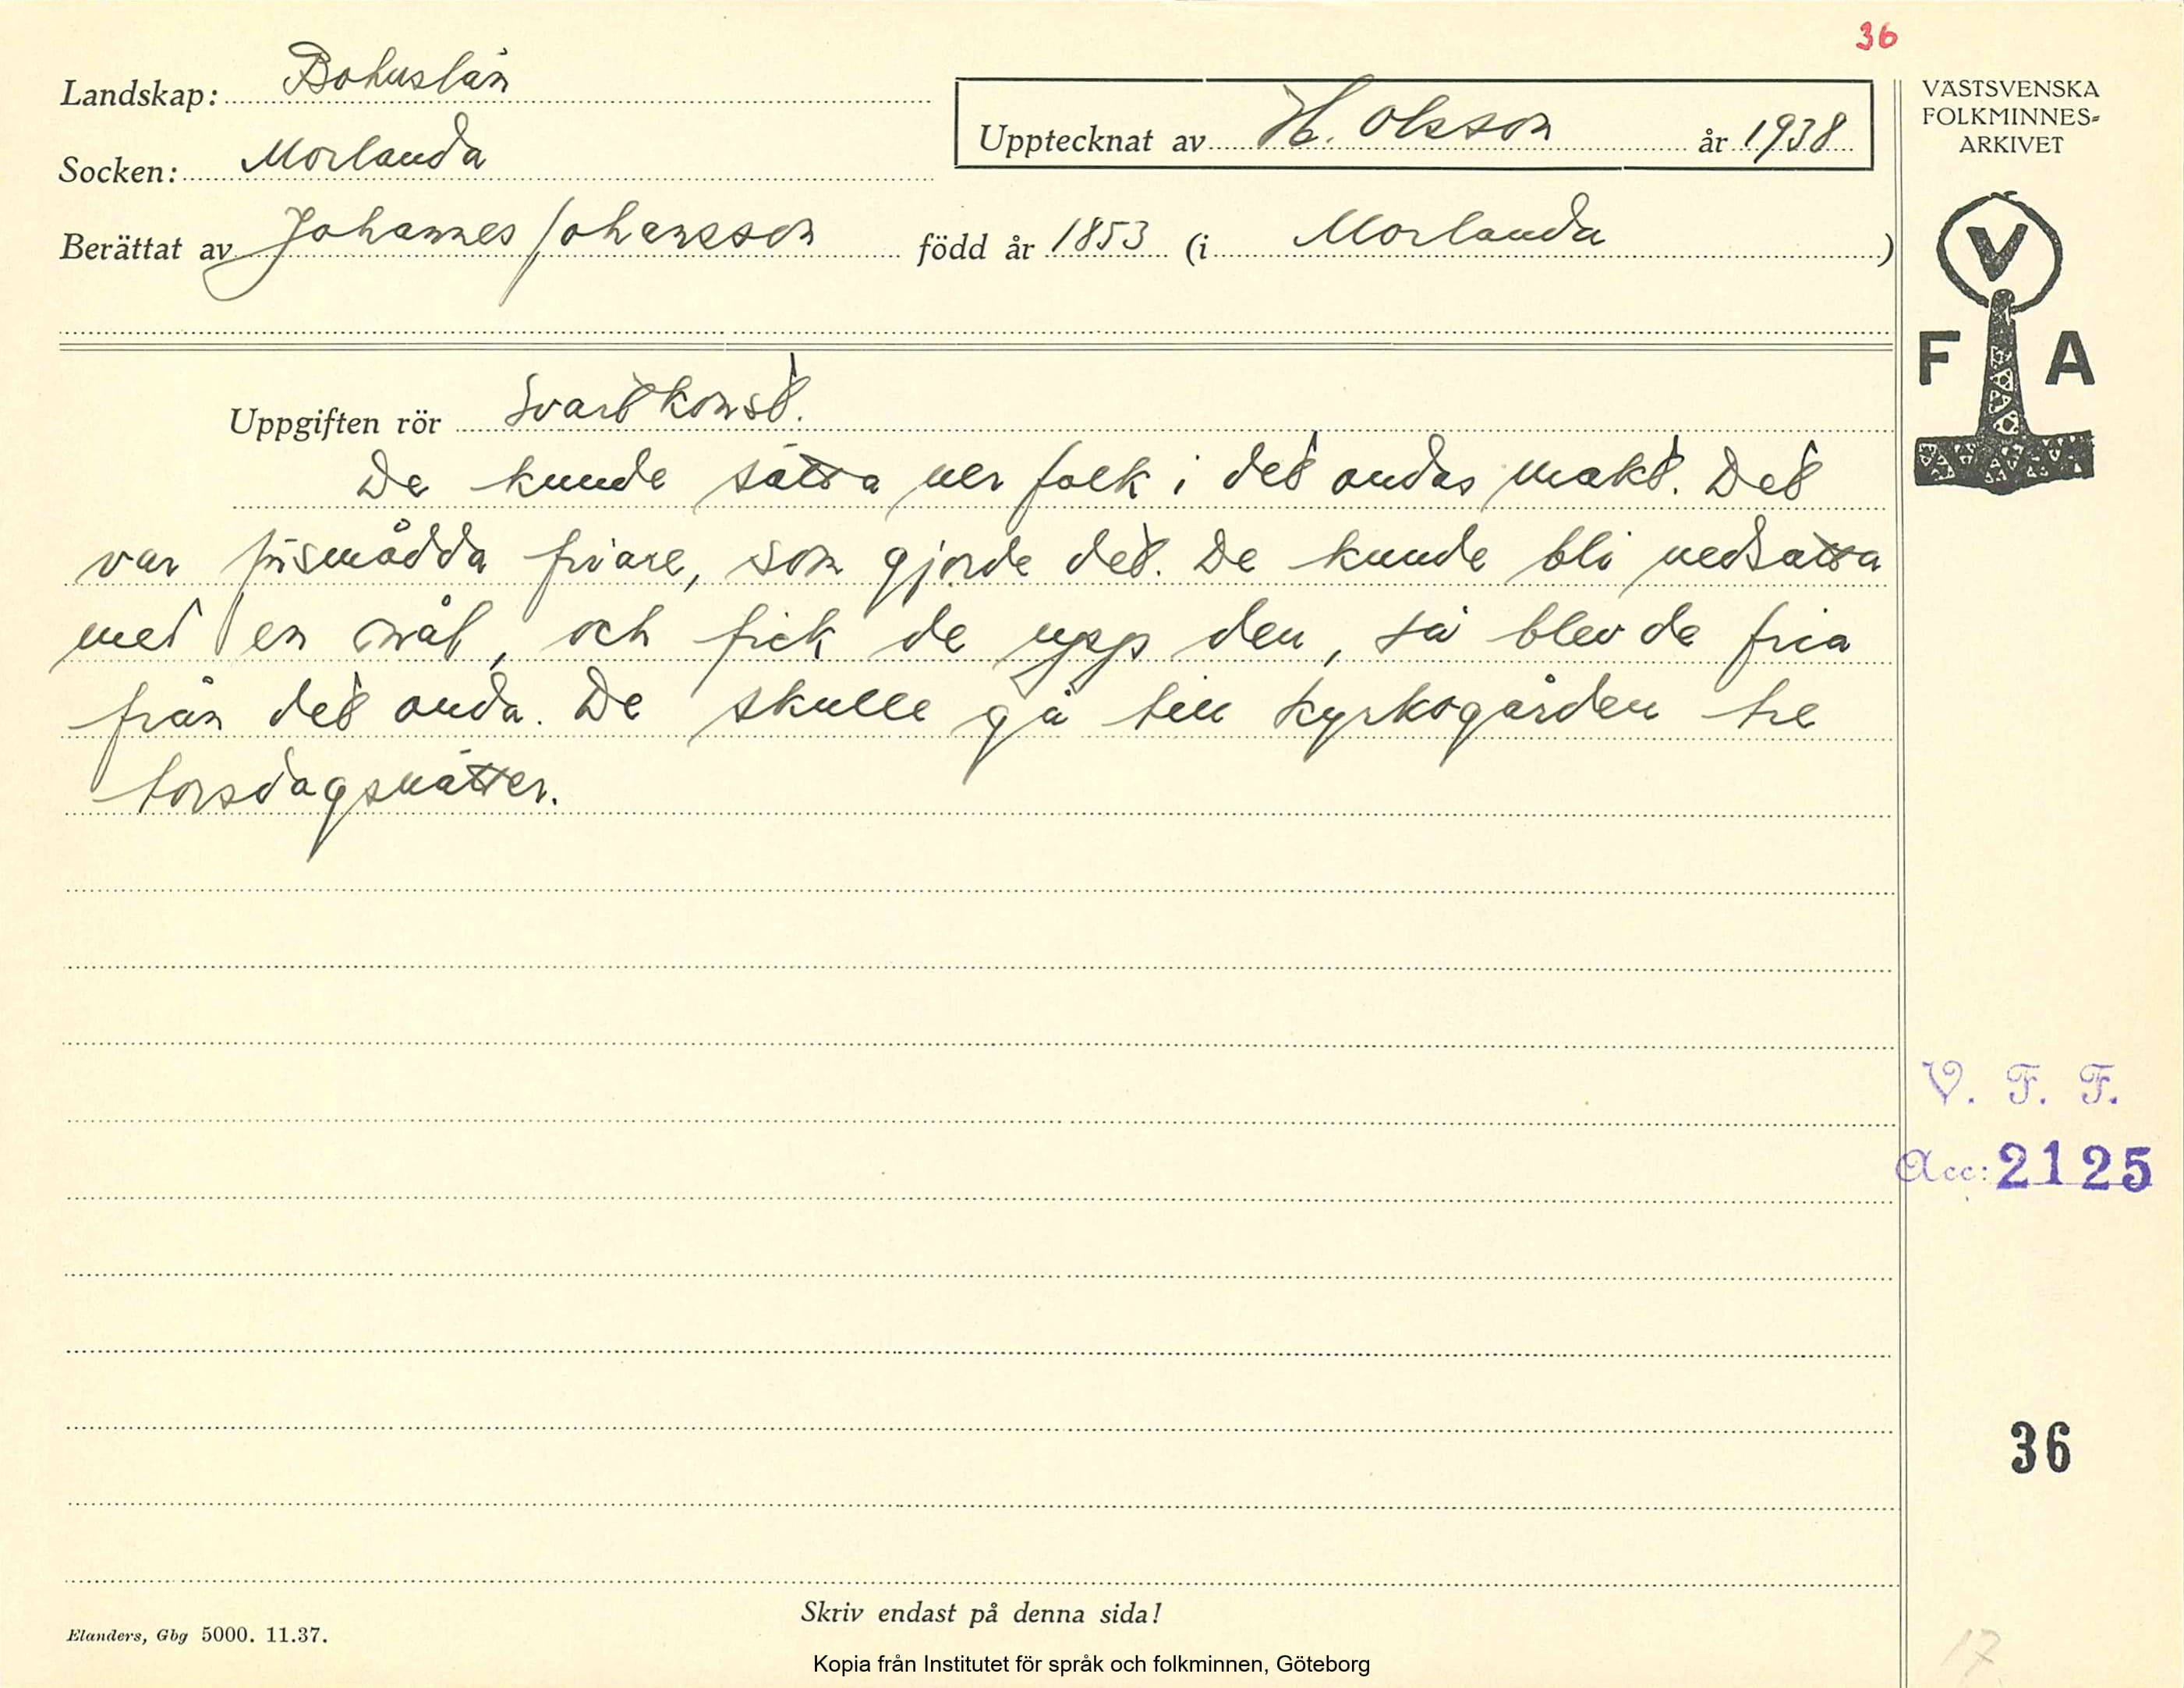 36
Landskap: Bohuslän
Socken: Morlanda
Upptecknat av H. Olsson år 1938
Berättat av Johannes Johansson född år 1853 (i Morlanda)
VÄSTSVENSKA
FOLKMINNES-
ARKIVET
V
F A
Uppgiften rör Svartkonst.
De kunde sätta ner folk i det ondas makt. Det
var försmådda friare, som gjorde det. De kunde bli nedsatta
med en nål, och fick de upp den, så blev de fria
från det onda. De skulle gå till kyrkogården tre
torsdagsnätter.
V. F. F.
Acc: 2125
36
Skriv endast på denna sida!
Elanders, Gbg 5000. 11.37.
17
Kopia från Institutet för språk och folkminnen, Göteborg